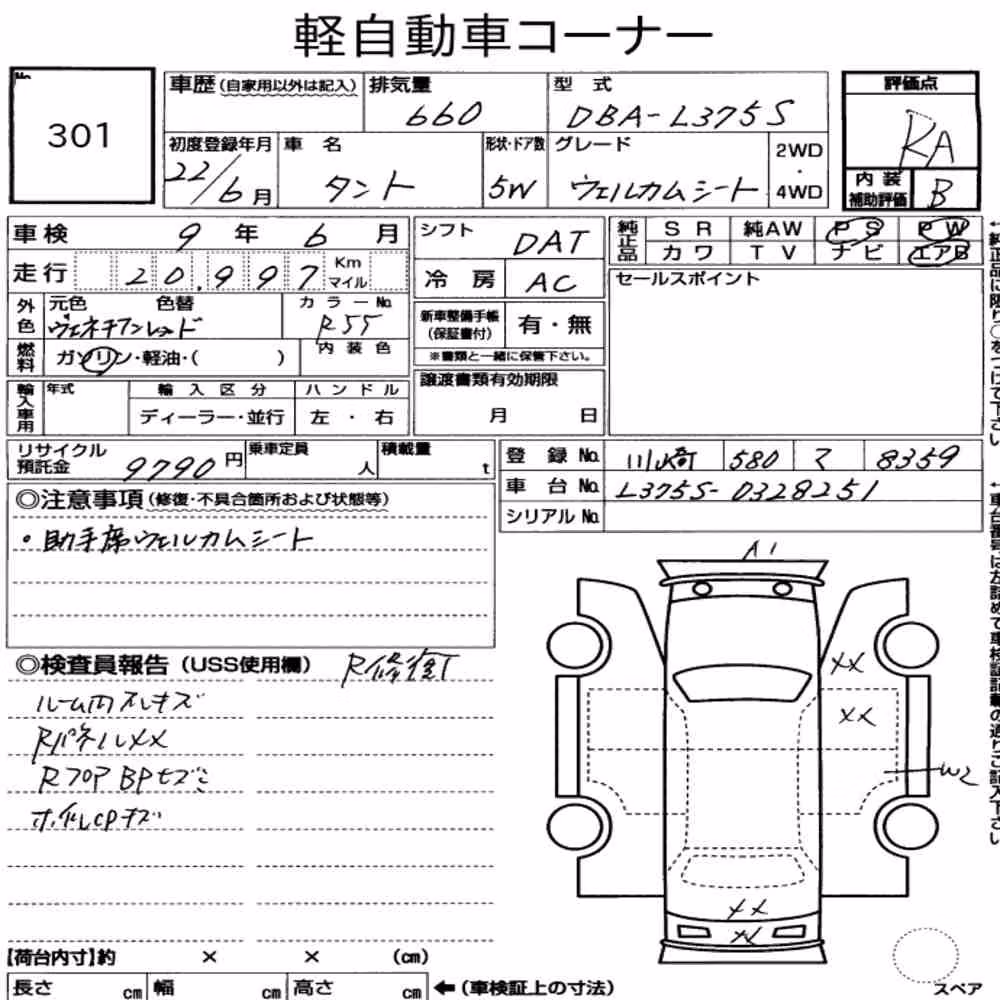 軽自動車コーナー
No. 301
車歴 (自家用以外は記入) 排気量 660 型 式 DBA-L375S
初度登録年月 22/6月 車 名 タント 形状・ドア数 5W グレード ウェルカムシート 2WD・4WD
評価点 RA
内装補助評価 B
車検 9年 6月
走行 20,997 Km マイル
外色 元色 色替 ヴェネチアンレッド カラーNo. R55
燃料 ガソリン・軽油・( ) 内装色
輸入車用 年式 輸入区分 ハンドル
ディーラー・並行 左・右
シフト DAT
冷房 AC
新車整備手帳 (保証書付) 有・無
※書類と一緒に保管下さい。
譲渡書類有効期限
月 日
純正品 SR 純AW PS PW
カワ TV ナビ エアB
セールスポイント
←純正品に限り○をつけて下さい
リサイクル預託金 9790円 乗車定員 人 積載量 t
登録No. 川崎 580 マ 8359
車台No. L375S-0328251
シリアルNo.
←車台番号は左詰めで車検証記載の通りご記入下さい。
◎注意事項 (修復・不具合箇所および状態等)
・助手席ウェルカムシート
◎検査員報告 (USS使用欄) R修復
ルーム内スレキズ
RパネルXX
RフロアBPヒズミ
ホイルCPキズ
A1
XX
XX
W2
XX
XX
【荷台内寸】約 × × (cm)
長さ cm 幅 cm 高さ cm ←(車検証上の寸法)
スペア